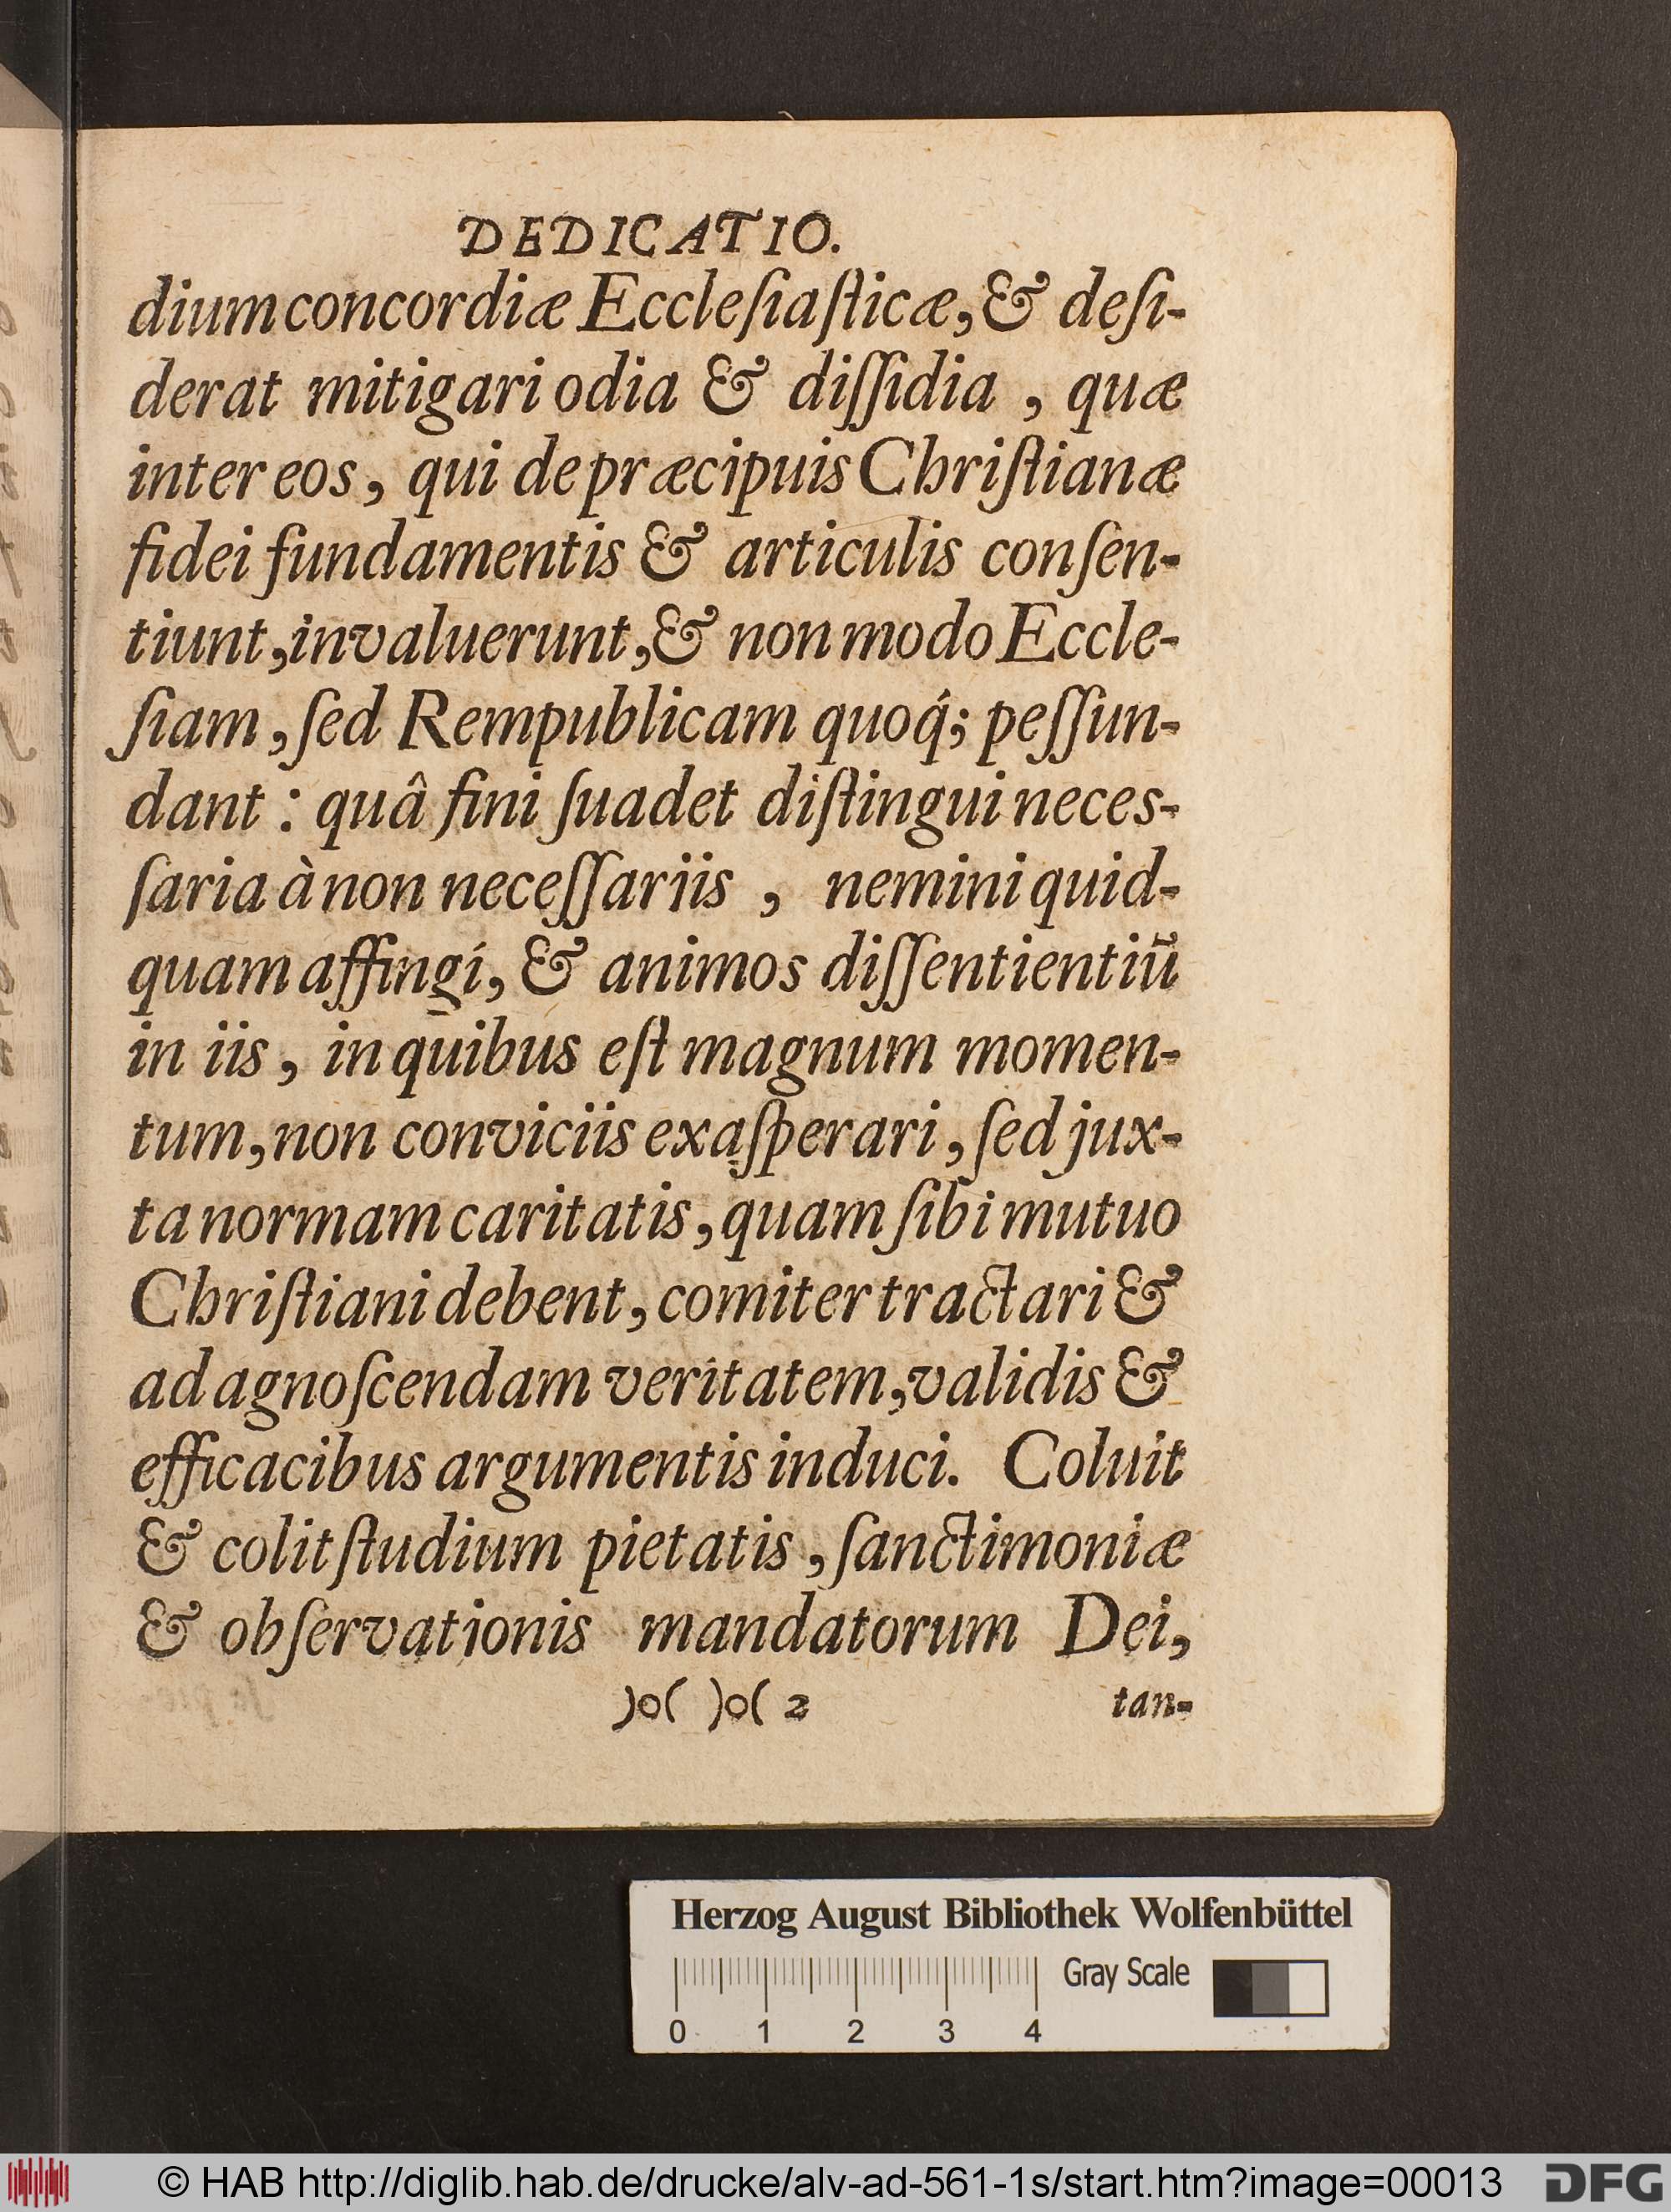 DEDICATIO.
dium concordiæ Eccleſiaſticæ, & deſi-
derat mitigari odia & diſſidia , quæ
inter eos, qui de præcipuis Chriſtianæ
fidei fundamentis & articulis conſen-
tiunt, invaluerunt, & non modo Eccle-
ſiam, ſed Rempublicam quoq́; peſſun-
dant : quâ fini ſuadet diſtingui neces-
ſaria à non neceſſariis , nemini quid-
quam affingi, & animos diſſentientiũ
in iis, in quibus eſt magnum momen-
tum, non conviciis exaſperari, ſed jux-
ta normam caritatis, quam ſibi mutuo
Chriſtiani debent, comiter tractari &
ad agnoſcendam veritatem, validis &
efficacibus argumentis induci. Coluit
& colit ſtudium pietatis, ſanctimoniæ
& obſervationis mandatorum Dei,
)o( )o( 2 tan-
Herzog August Bibliothek Wolfenbüttel
Gray Scale
0 1 2 3 4
© HAB http://diglib.hab.de/drucke/alv-ad-561-1s/start.htm?image=00013 DFG